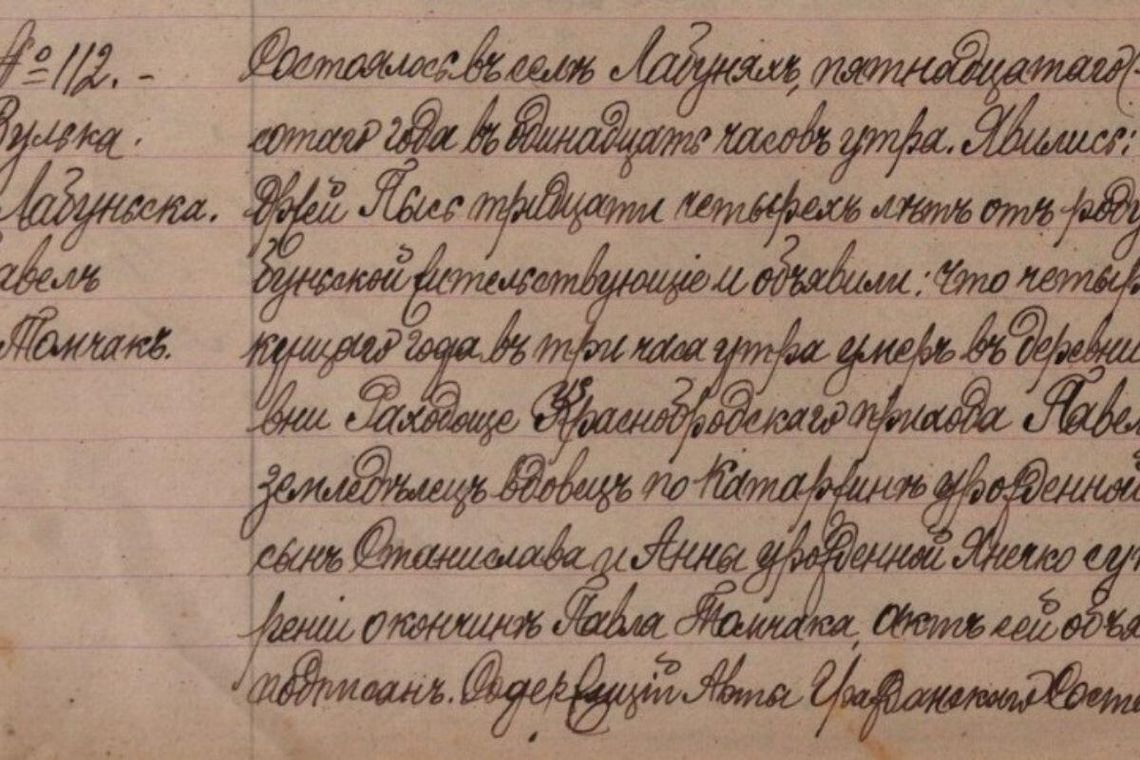 № 112. - Состоялось въ селѣ Лабуняхъ, пятнадцатаго
Вулька. сотаго года въ одинадцать часовъ утра. Явились:
Лабуньска. джей Пысь тридцати четырехъ лѣтъ отъ роду
авелъ буньской жительствующіе и объявили: что четыр
Томчакъ. кущаго года въ три часа утра умеръ въ деревни
вни Раходоще Краснобродскаго прихода Павел
земледѣлецъ вдовецъ по Катаржинѣ урожденной
сынъ Станислава и Анны урожденной Хнечко су
реніи о кончинѣ Павла Томчака, актъ сей объя
подписанъ. Содержащій Акты Гражданскаго Состо